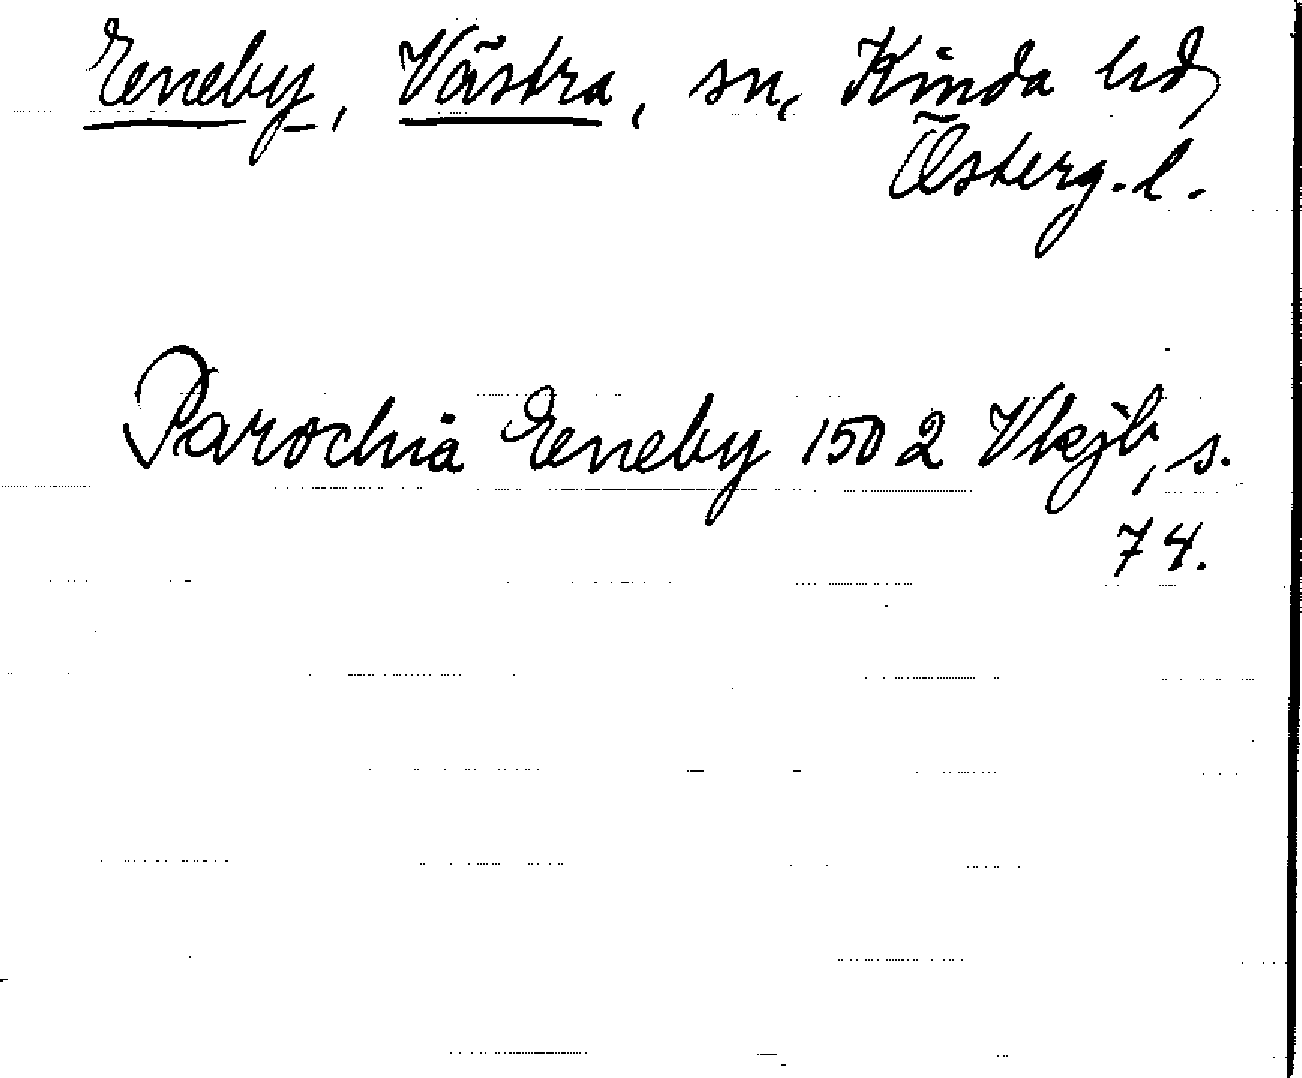 Eneby, Västra, sn, Kinda hd,
Österg. l.
Parochia Eneby 1502 Vkjb, s.
74.